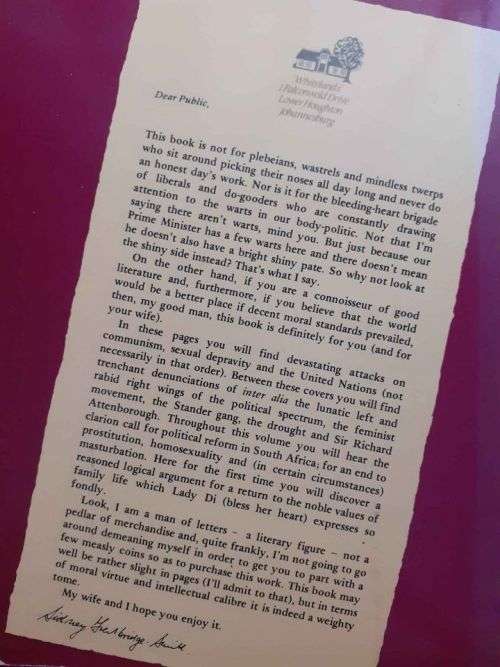 Whitelands
1 Falconwold Drive
Lower Houghton
Johannesburg
Dear Public,
This book is not for plebeians, wastrels and mindless twerps
who sit around picking their noses all day long and never do
an honest day's work. Nor is it for the bleeding-heart brigade
of liberals and do-gooders who are constantly drawing
attention to the warts in our body-politic. Not that I'm
saying there aren't warts, mind you. But just because our
Prime Minister has a few warts here and there doesn't mean
he doesn't also have a bright shiny pate. So why not look at
the shiny side instead? That's what I say.
On the other hand, if you are a connoisseur of good
literature and, furthermore, if you believe that the world
would be a better place if decent moral standards prevailed,
then, my good man, this book is definitely for you (and for
your wife).
In these pages you will find devastating attacks on
communism, sexual depravity and the United Nations (not
necessarily in that order). Between these covers you will find
trenchant denunciations of inter alia the lunatic left and
rabid right wings of the political spectrum, the feminist
movement, the Stander gang, the drought and Sir Richard
Attenborough. Throughout this volume you will hear the
clarion call for political reform in South Africa; for an end to
prostitution, homosexuality and (in certain circumstances)
masturbation. Here for the first time you will discover a
reasoned logical argument for a return to the noble values of
family life which Lady Di (bless her heart) expresses so
fondly.
Look, I am a man of letters – a literary figure – not a
pedlar of merchandise and, quite frankly, I'm not going to go
around demeaning myself in order to get you to part with a
few measly coins so as to purchase this work. This book may
well be rather slight in pages (I'll admit to that), but in terms
of moral virtue and intellectual calibre it is indeed a weighty
tome.
My wife and I hope you enjoy it.
Sidney